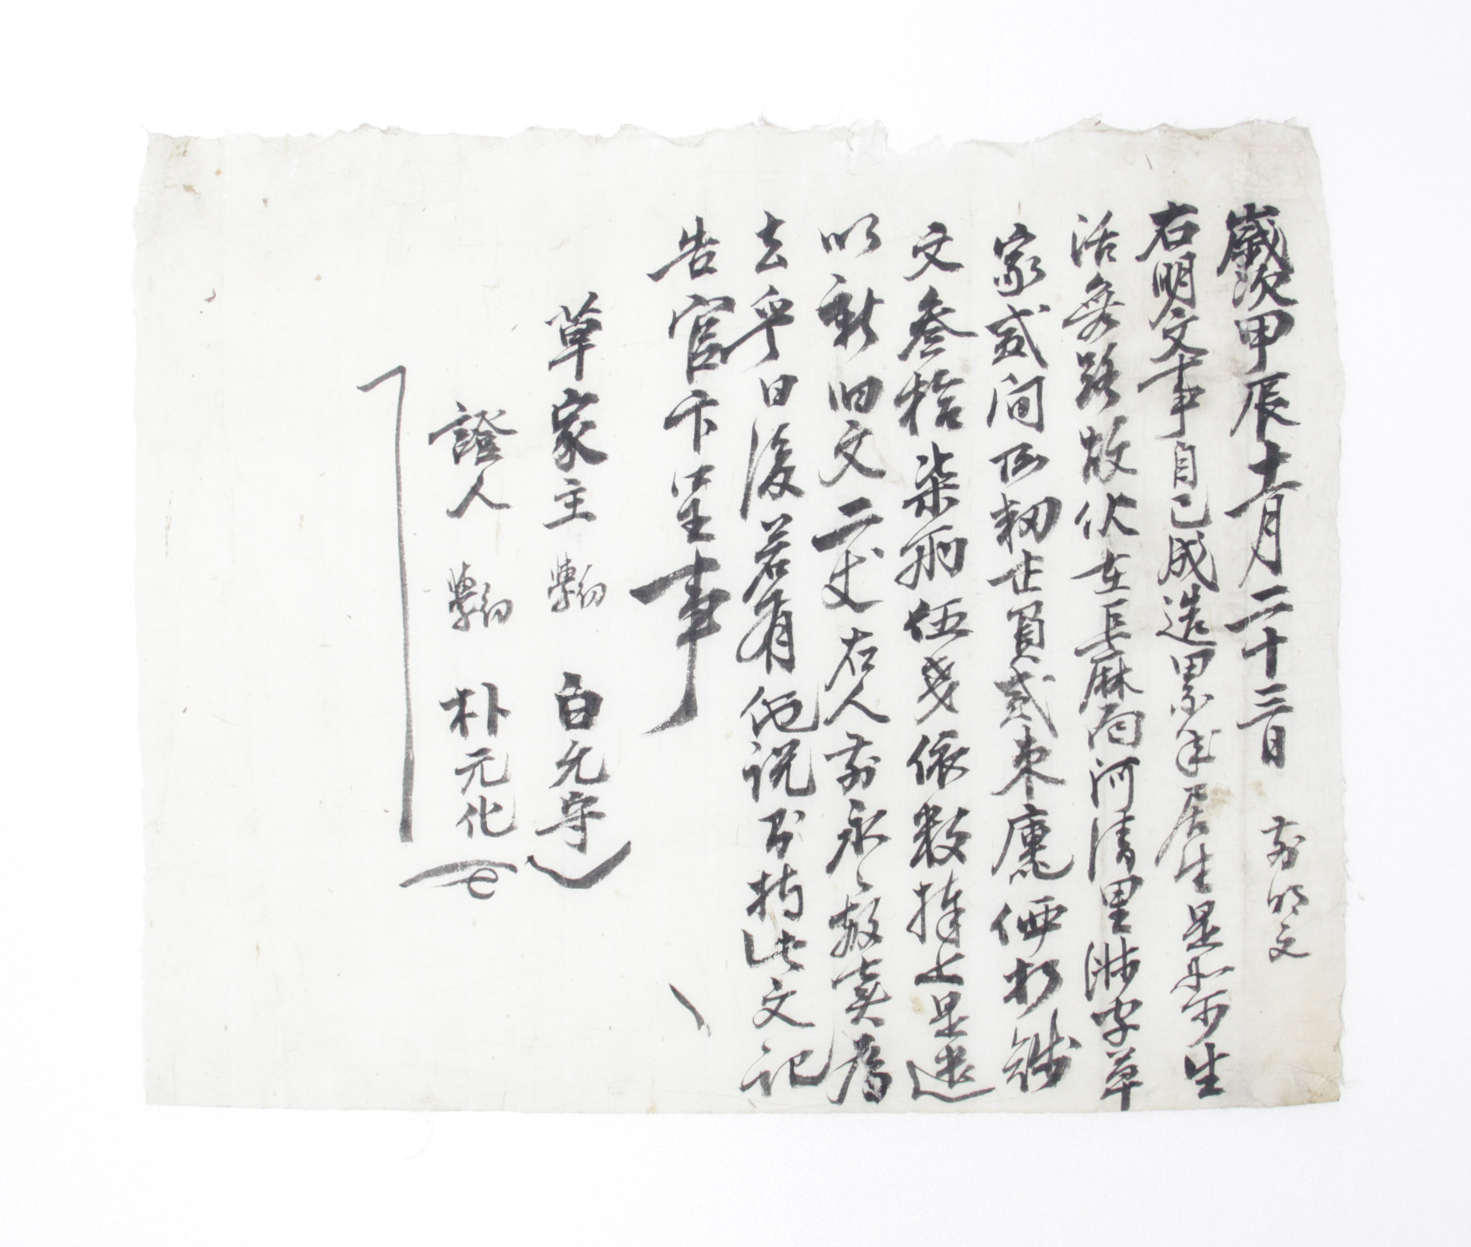 歲次甲辰十一月二十三日 前明文
右明文事自己成造累年居生是如可生
活無路故伏在長麻面河清里淋字草
家貳間 㐣負貳束廛價折錢
文叄拾柒兩伍戔依數捧上是遣
以新旧文二丈右人前永永放賣爲
去乎日後若有他說以持此文記
告官卞呈事
草家主 幼學 白允守
證人 幼學 朴元化